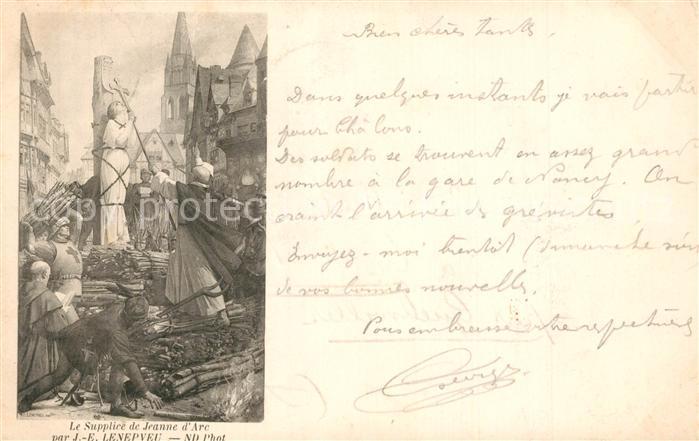 Bien chères tantes,
Dans quelques instants je vais partir
pour Châlons.
Des soldats se trouvent en assez grand
nombre à la gare de Nancy. On
craint l'arrivée de grévistes.
Envoyez-moi bientôt (dimanche
de vos bonnes nouvelles.
Vous embrasse votre respectueux
Georges
Le Supplice de Jeanne d'Arc
par J.-E. LENEPVEU — ND Phot
copyright protected